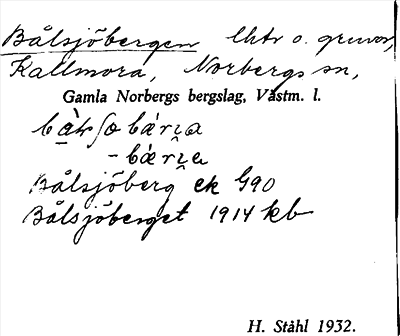 Bålsjöbergen lhtr o. gruvor,
Kallmora, Norbergs sn,
Gamla Norbergs bergslag, Västm. l.
Bålsjöberg ek 490
Bålsjöberget 1914 kb
H. Ståhl 1932.